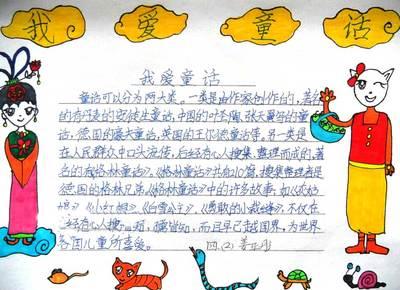 我 爱 童 话
我爱童话
童话可以分为两大类。一类是由作家创作的,著名
的有丹麦的安徒生童话,中国的叶圣陶、张天翼等的童
话,德国的豪夫童话,英国的王尔德童话等,另一类是
在人民群众中口头流传,后经有心人搜集、整理而成的,著
名的有《格林童话》。《格林童话》共有210篇,搜集整理者是
德国的格林兄弟。《格林童话》中的许多故事,如《灰姑
娘》《小红帽》《白雪公主》《勇敢的小裁缝》,不仅在
经有心人搜 知,而且早已越国界,为世界
各国儿童所喜爱。 四、(2)